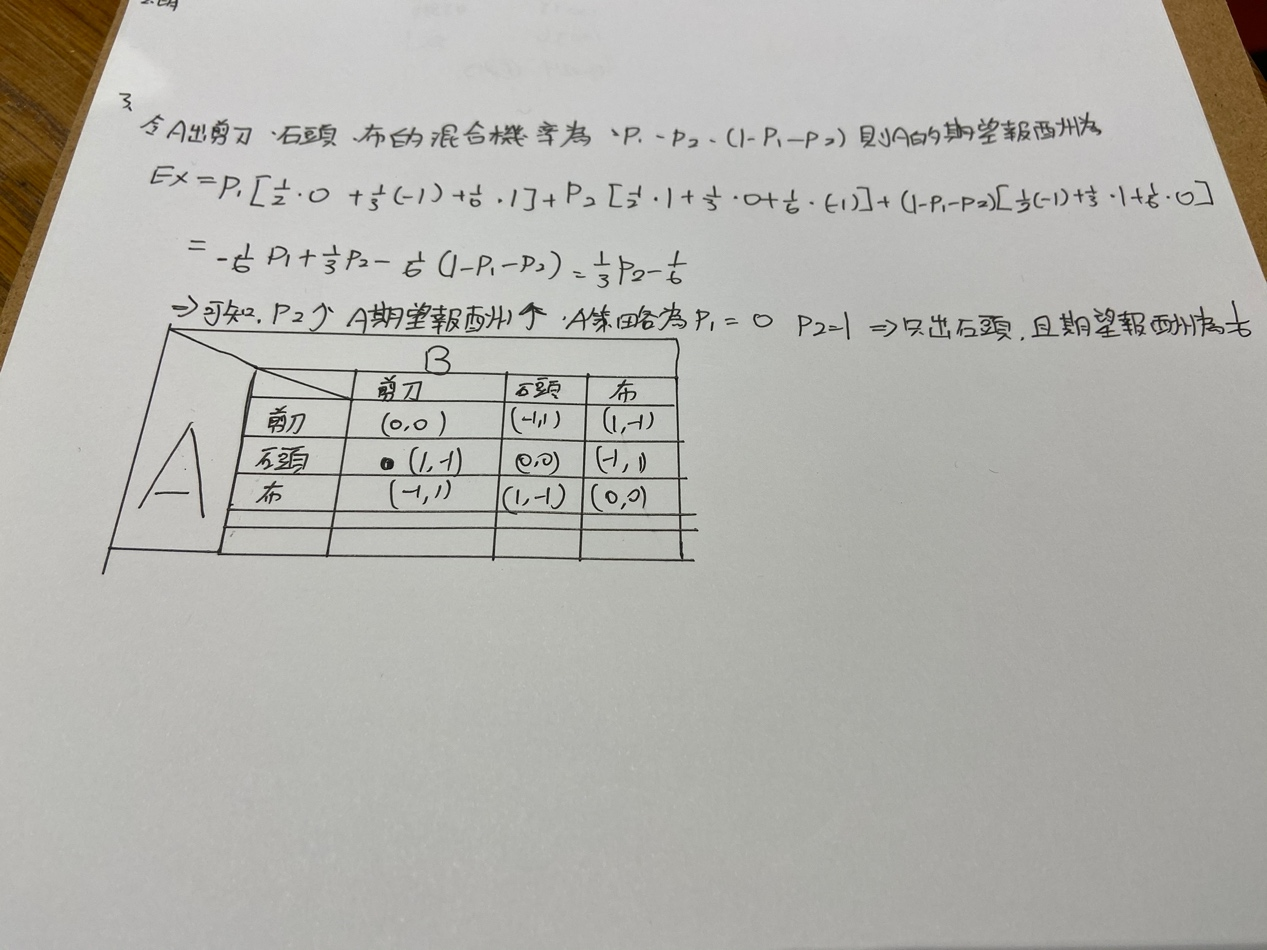 3.
令A出剪刀、石頭、布的混合機率為、P₁、P₂、(1-P₁-P₂) 則A的期望報酬為
EX = P₁[½·0 + ⅓(-1) + ⅙·1] + P₂[½·1 + ⅓·0 + ⅙·(-1)] + (1-P₁-P₂)[½(-1) + ⅓·1 + ⅙·0]
= -⅙P₁ + ⅓P₂ - ⅙(1-P₁-P₂) = ⅓P₂ - ⅙
⇒可知, P₂↑ A期望報酬↑ . A策略為P₁ = 0 P₂=1 ⇒只出石頭, 且期望報酬為⅙
B
剪刀 石頭 布
A
剪刀 (0,0) (-1,1) (1,-1)
石頭 (1,-1) (0,0) (-1,1)
布 (-1,1) (1,-1) (0,0)